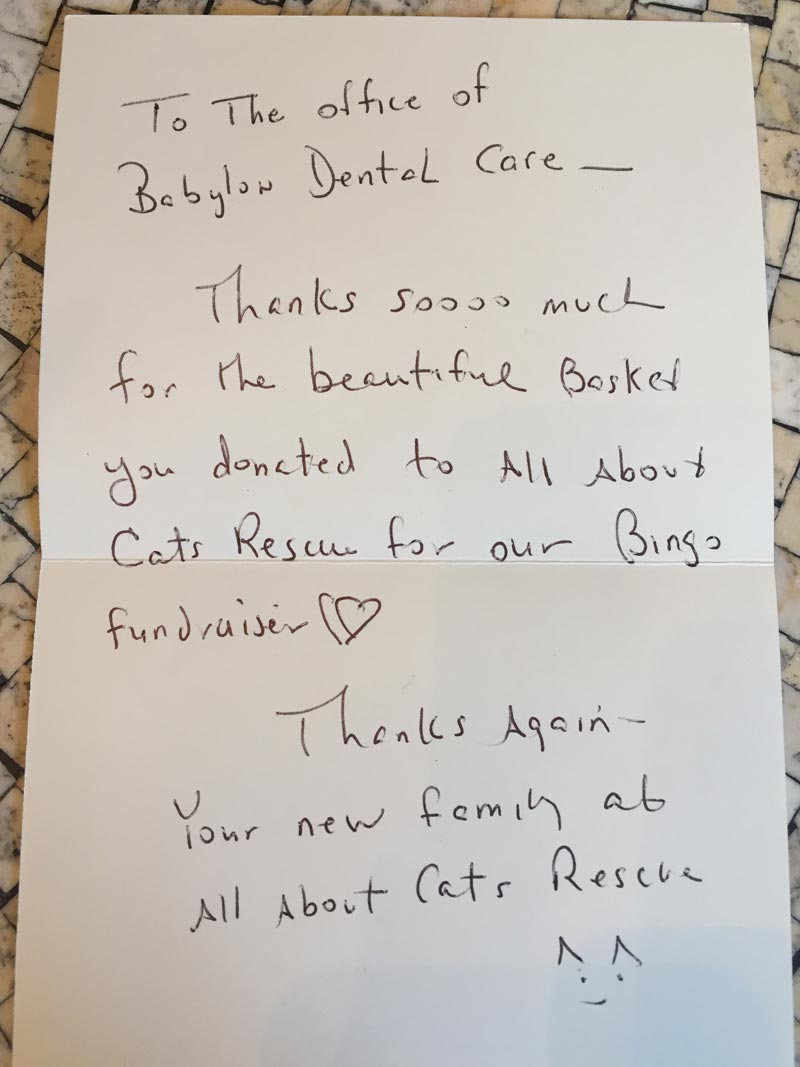 To The office of
Babylon Dental Care —
Thanks soooo much
for the beautiful Basket
you donated to All About
Cats Rescue for our Bingo
fundraiser
Thanks Again —
Your new family at
All About Cats Rescue